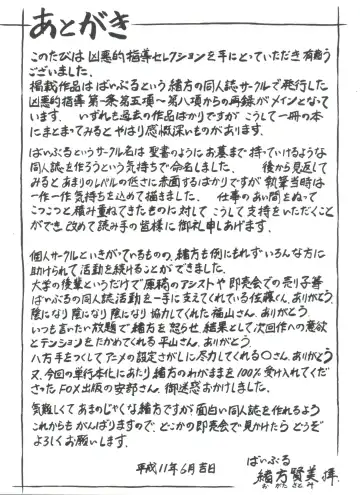 あとがき
このたびは凶悪的指導セレクションを手にとっていただき有難う
ございました。
掲載作品はばいぶるという緒方の同人誌サークルで発行した
凶悪的指導第一条第五項～第八項からの再録がメインとなって
います。 いずれも過去の作品ばかりですがこうして一冊の本
にまとまってみるとやはり感慨深いものがあります。
ばいぶるというサークル名は聖書のようにお墓まで持っていけるような
同人誌を作ろうという気持ちで命名しました。 後から見返して
みるとあまりのレベルの低さに赤面するばかりですが執筆当時は
一作一作気持ちを込めて描きました。 仕事のあい間をぬって
こつこつと積み重ねてきたものに対してこうして支持をいただくこと
ができ改めて読み手の皆様に御礼申しあげます。
個人サークルといきがっているものの、緒方も例にもれずいろんな方に
助けられて活動を続けることができました。
大学の後輩というだけで原稿のアシストや即売会での売り子等
ばいぶるの同人誌活動を一手に支えてくれている佐藤くん、ありがとう。
陰になり陰になり陰になり協力してくれた福山さん、ありがとう。
いつも言いたい放題で緒方を怒らせ結果として次回作への意欲
とテンションをたかめてくれる平山さん、ありがとう。
八方手をつくしてアメの設定さがしに尽力してくれる〇さん、ありがとう
又、今回の単行本化にあたり緒方のわがままを100%受け入れてくだ
さったFOX出版の安部さん、御迷惑おかけしました。
気難しくてあまのじゃくな緒方ですが面白い同人誌を作れるよう
これからもがんばりますので、どこかの即売会で見かけたらどうぞ
よろしくお願いします。
平成11年6月吉日
ばいぶる
緒方賢美 拝
おがたさとみ